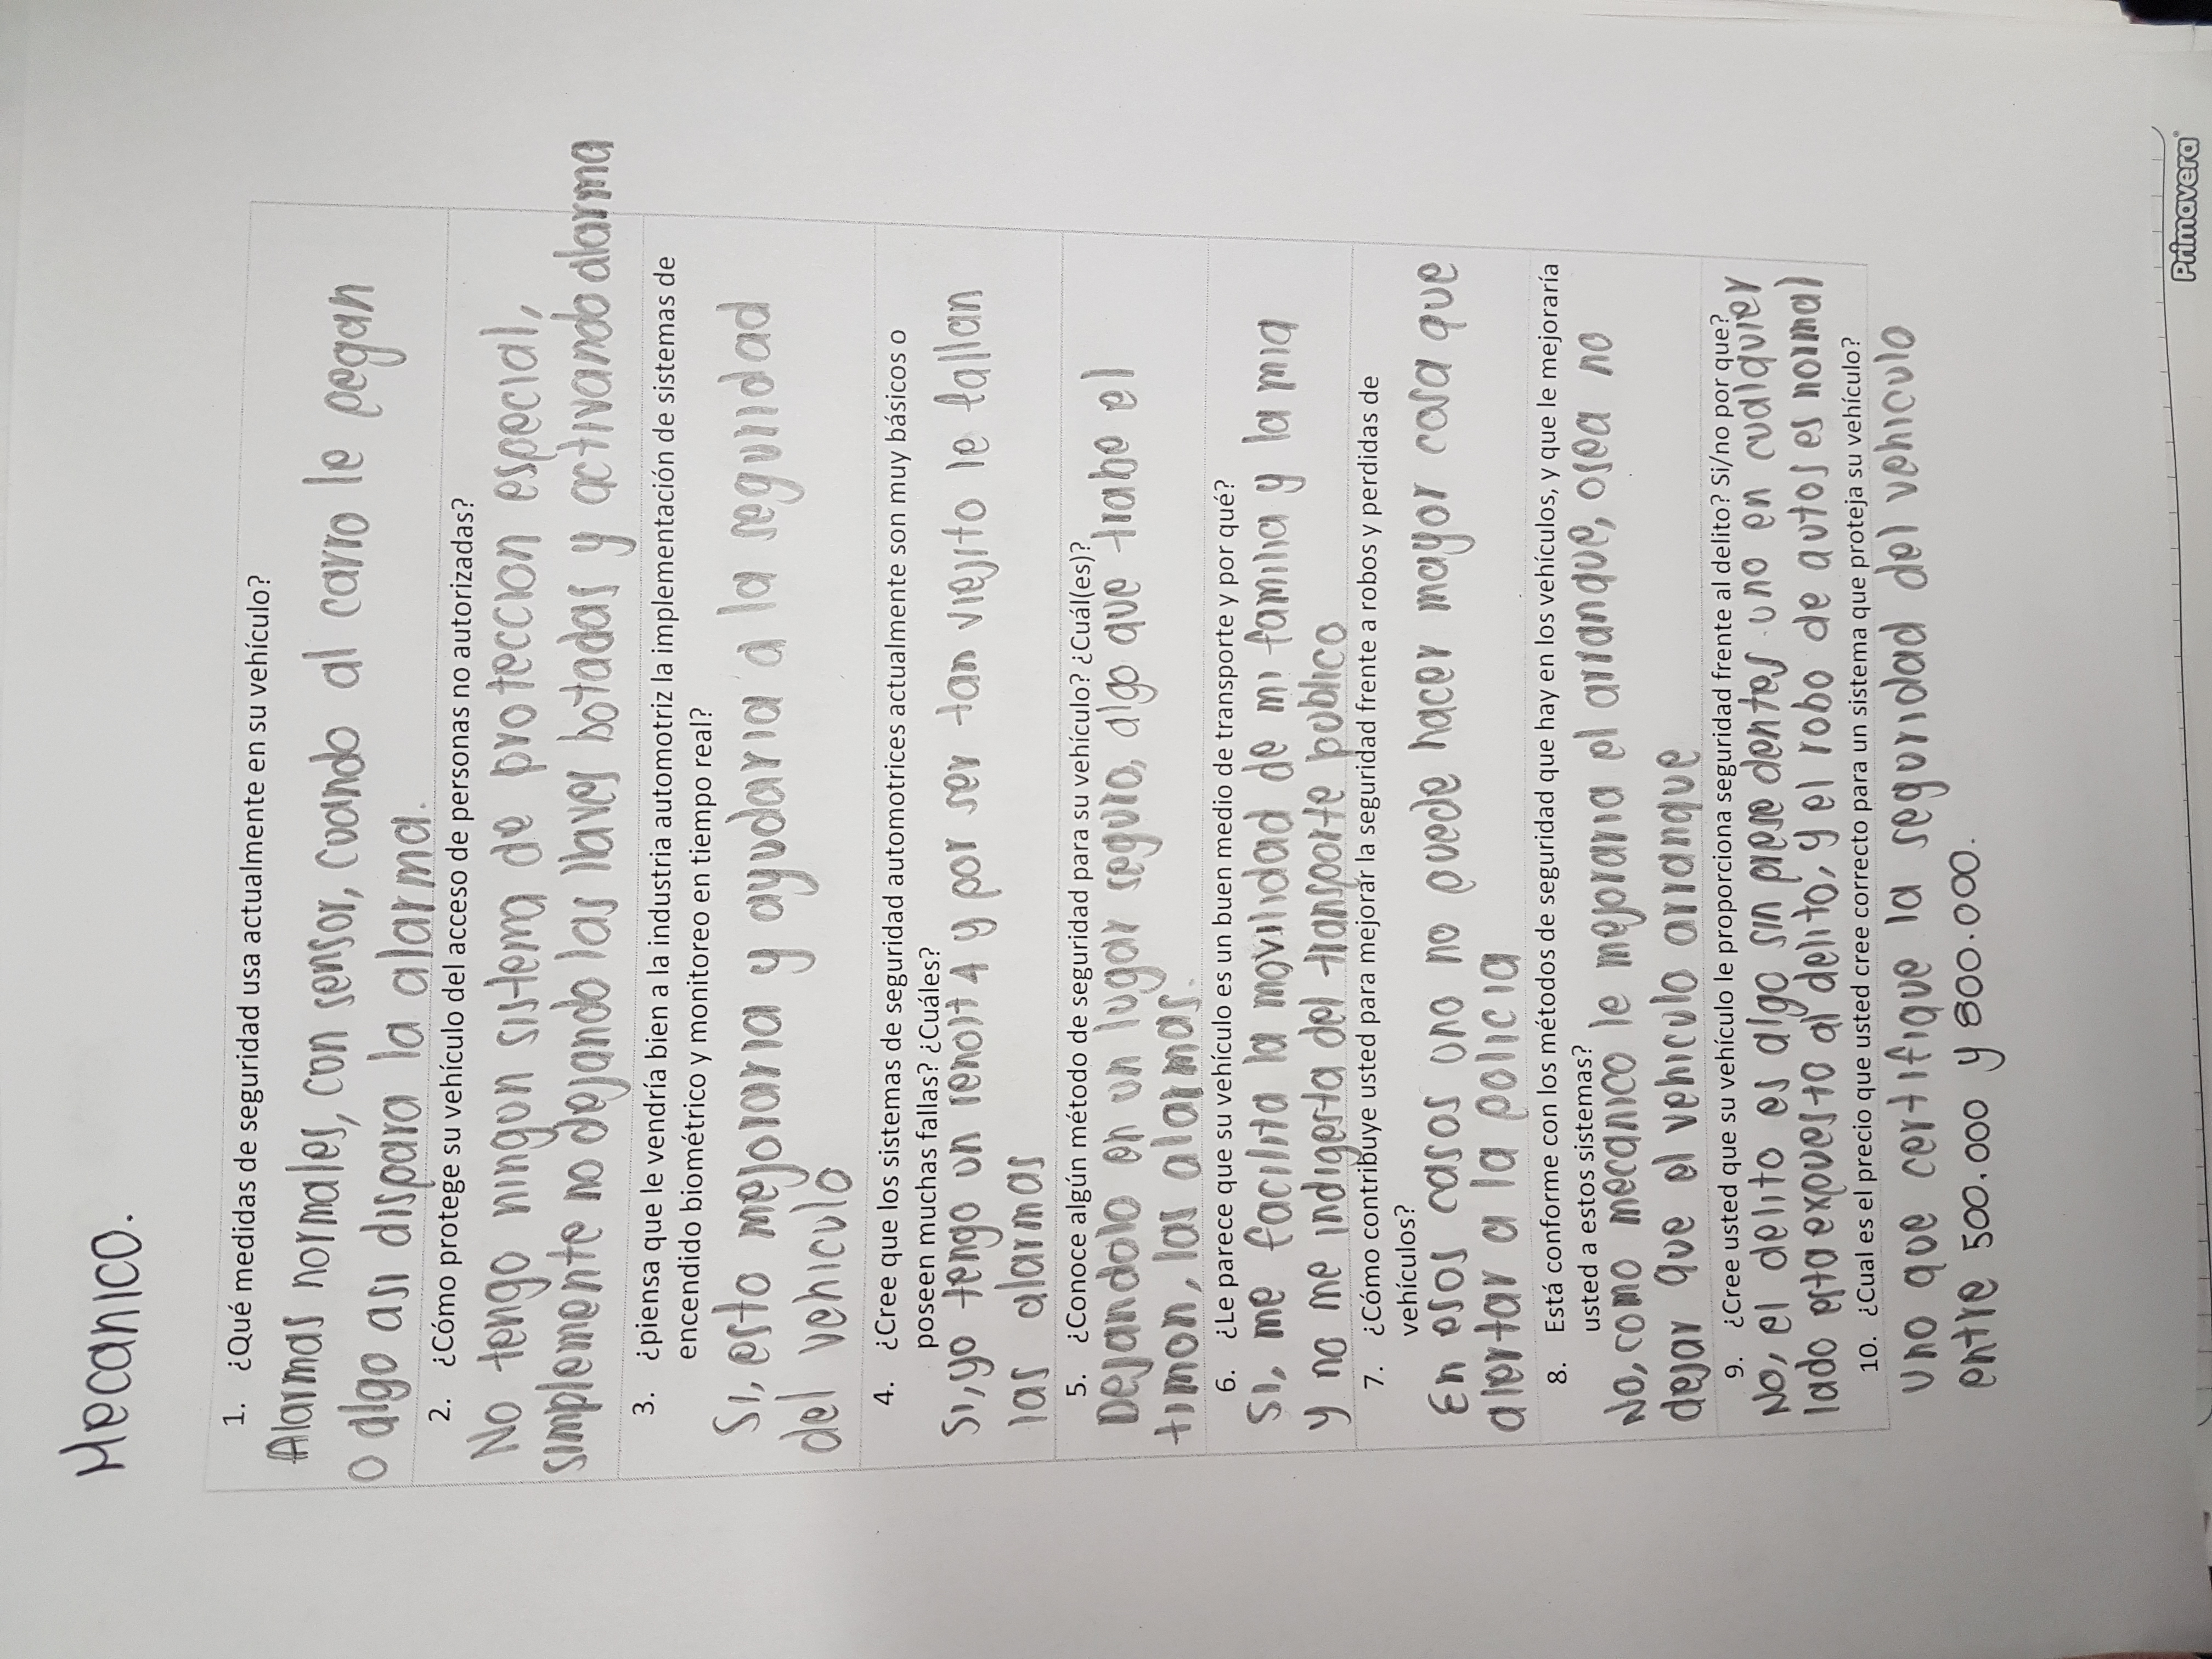 Mecanico.
1. ¿Qué medidas de seguridad usa actualmente en su vehículo?
Alarmas normales, con sensor, cuando al carro le pegan
o algo asi dispara la alarma.
2. ¿Cómo protege su vehículo del acceso de personas no autorizadas?
No tengo ningun sistema de proteccion especial,
simplemente no dejando las llaves botadas y activando alarma
3. ¿piensa que le vendría bien a la industria automotriz la implementación de sistemas de
encendido biométrico y monitoreo en tiempo real?
Si, esto mejoraria y ayudaria a la seguridad
del vehiculo
4. ¿Cree que los sistemas de seguridad automotrices actualmente son muy básicos o
poseen muchas fallas? ¿Cuáles?
Si, yo tengo un renolt 4 y por ser tan viejito le fallan
las alarmas
5. ¿Conoce algún método de seguridad para su vehículo? ¿Cuál(es)?
Dejandolo en un lugar seguro, algo que trabe el
timon, las alarmas.
6. ¿Le parece que su vehículo es un buen medio de transporte y por qué?
Si, me facilita la movilidad de mi familia y la mia
y no me indigesta del transporte publico
7. ¿Cómo contribuye usted para mejorar la seguridad frente a robos y perdidas de
vehículos?
En esos casos uno no puede hacer mayor cosa que
alertar a la policia
8. Está conforme con los métodos de seguridad que hay en los vehículos, y que le mejoraría
usted a estos sistemas?
No, como mecanico le mejoraria el arranque, osea no
dejar que el vehiculo arranque
9. ¿Cree usted que su vehículo le proporciona seguridad frente al delito? Si/no por que?
No, el delito es algo sin presedentes uno en cualquier
lado esta expuesto al delito, y el robo de autos es normal
10. ¿Cual es el precio que usted cree correcto para un sistema que proteja su vehículo?
uno que certifique la seguridad del vehiculo
entre 500.000 y 800.000.
Primavera